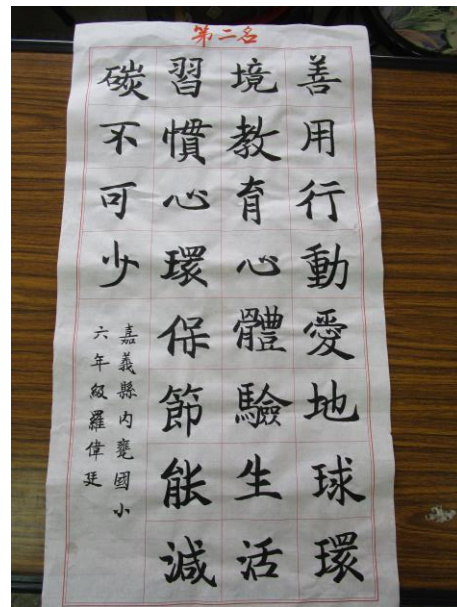 第二名
善用行動愛地球環
境教育心體驗生活
習慣心環保節能減
碳不可少
嘉義縣內甕國小
六年級羅偉廷